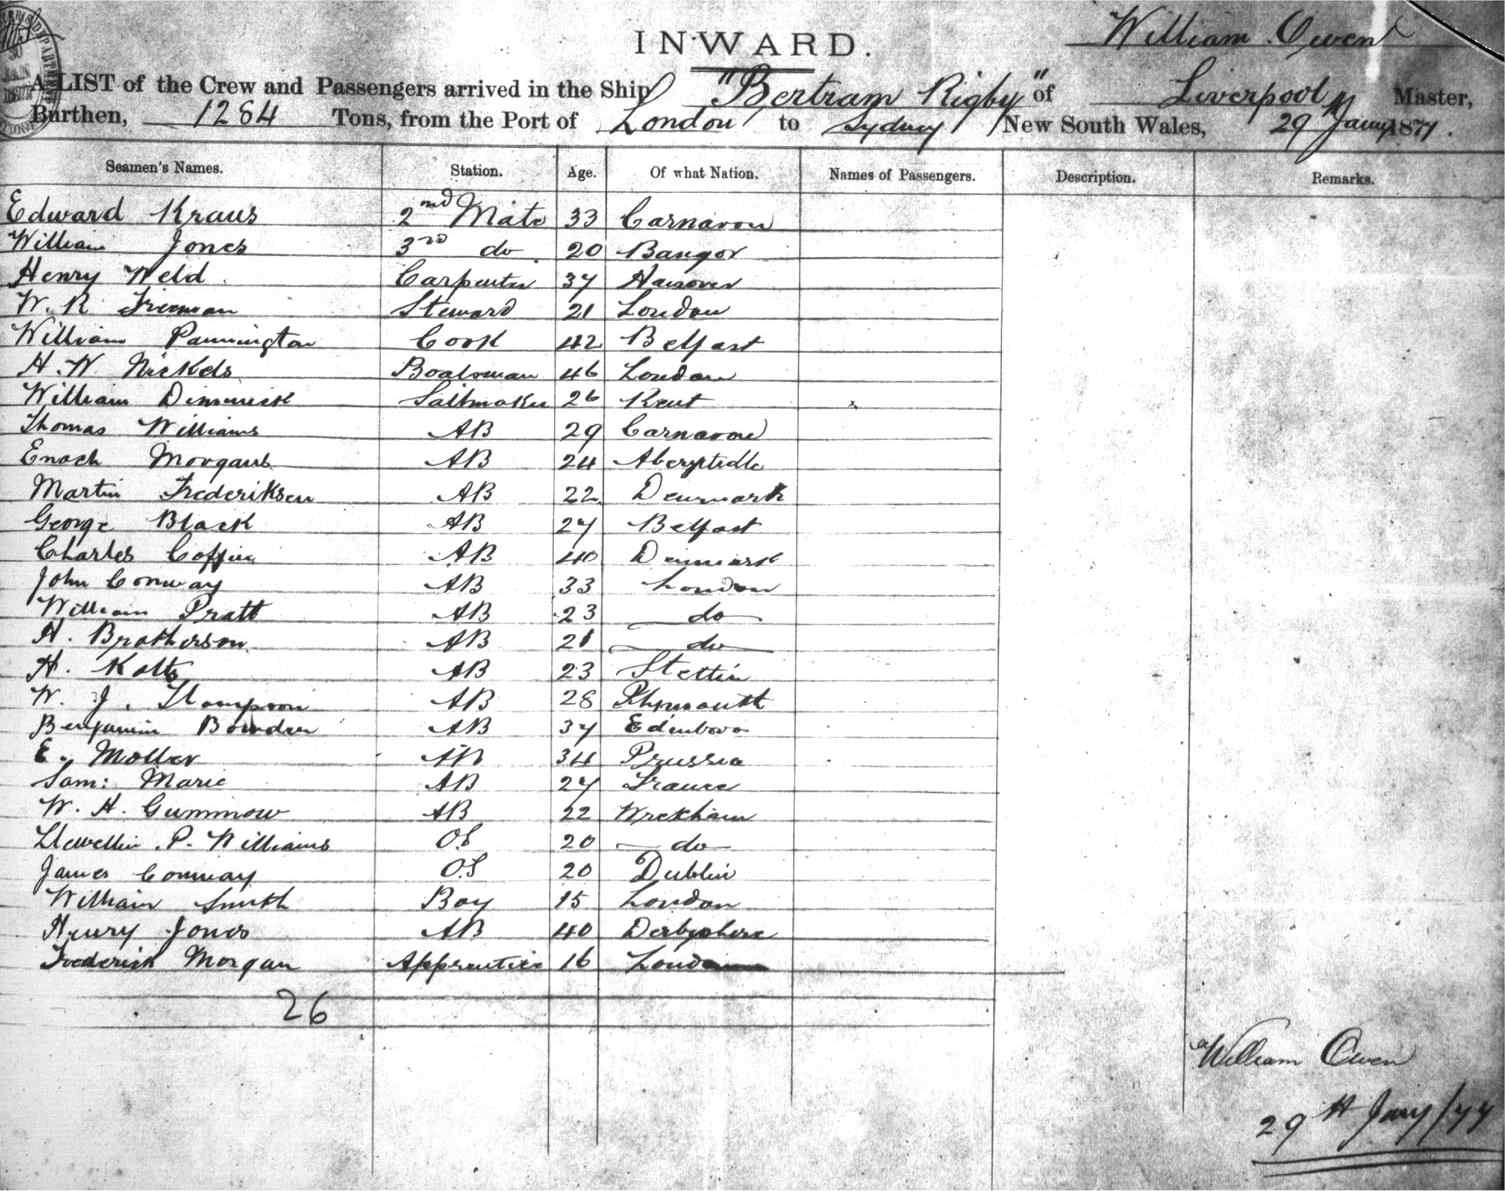 INWARD.
William Owen
A LIST of the Crew and Passengers arrived in the Ship "Bertram Rigby" of Liverpool Master,
Burthen, 1284 Tons, from the Port of London to Sydney New South Wales, 29 Jany 1877.
Seamen's Names. Station. Age. Of what Nation. Names of Passengers. Description. Remarks.
Edward Kraus 2nd Mate 33 Carnavon
William Jones 3rd do 20 Bangor
Henry Weld Carpenter 37 Hanover
W. R Freeman Steward 21 London
William Pannington Cook 42 Belfast
H. W. Nickels Boatsman 46 London
William Diminick Sailmaker 26 Kent
Thomas Williams AB 29 Carnavon
Enoch Morgans AB 24
Martin Frederiksen AB 22 Denmark
George Black AB 27 Belfast
Charles Coffin AB 40 Denmark
John Conway AB 33 London
William Pratt AB 23 do
H. Brotherson AB 21 do
H. Kolts AB 23 Stettin
W. J. Thompson AB 28 Plymouth
Benjamin Bowden AB 37 Edenboro
E. Moller AB 34 Prussia
Sam: Marie AB 27 France
W. H. Gummow AB 22 Wrexham
Llewellin P. Williams OS 20 do
James Conway O.S 20 Dublin
William Smith Boy 15 London
Henry Jones AB 40 Derbyshire
Frederick Morgan Apprentice 16 London
26
William Owen
29th Jany/77